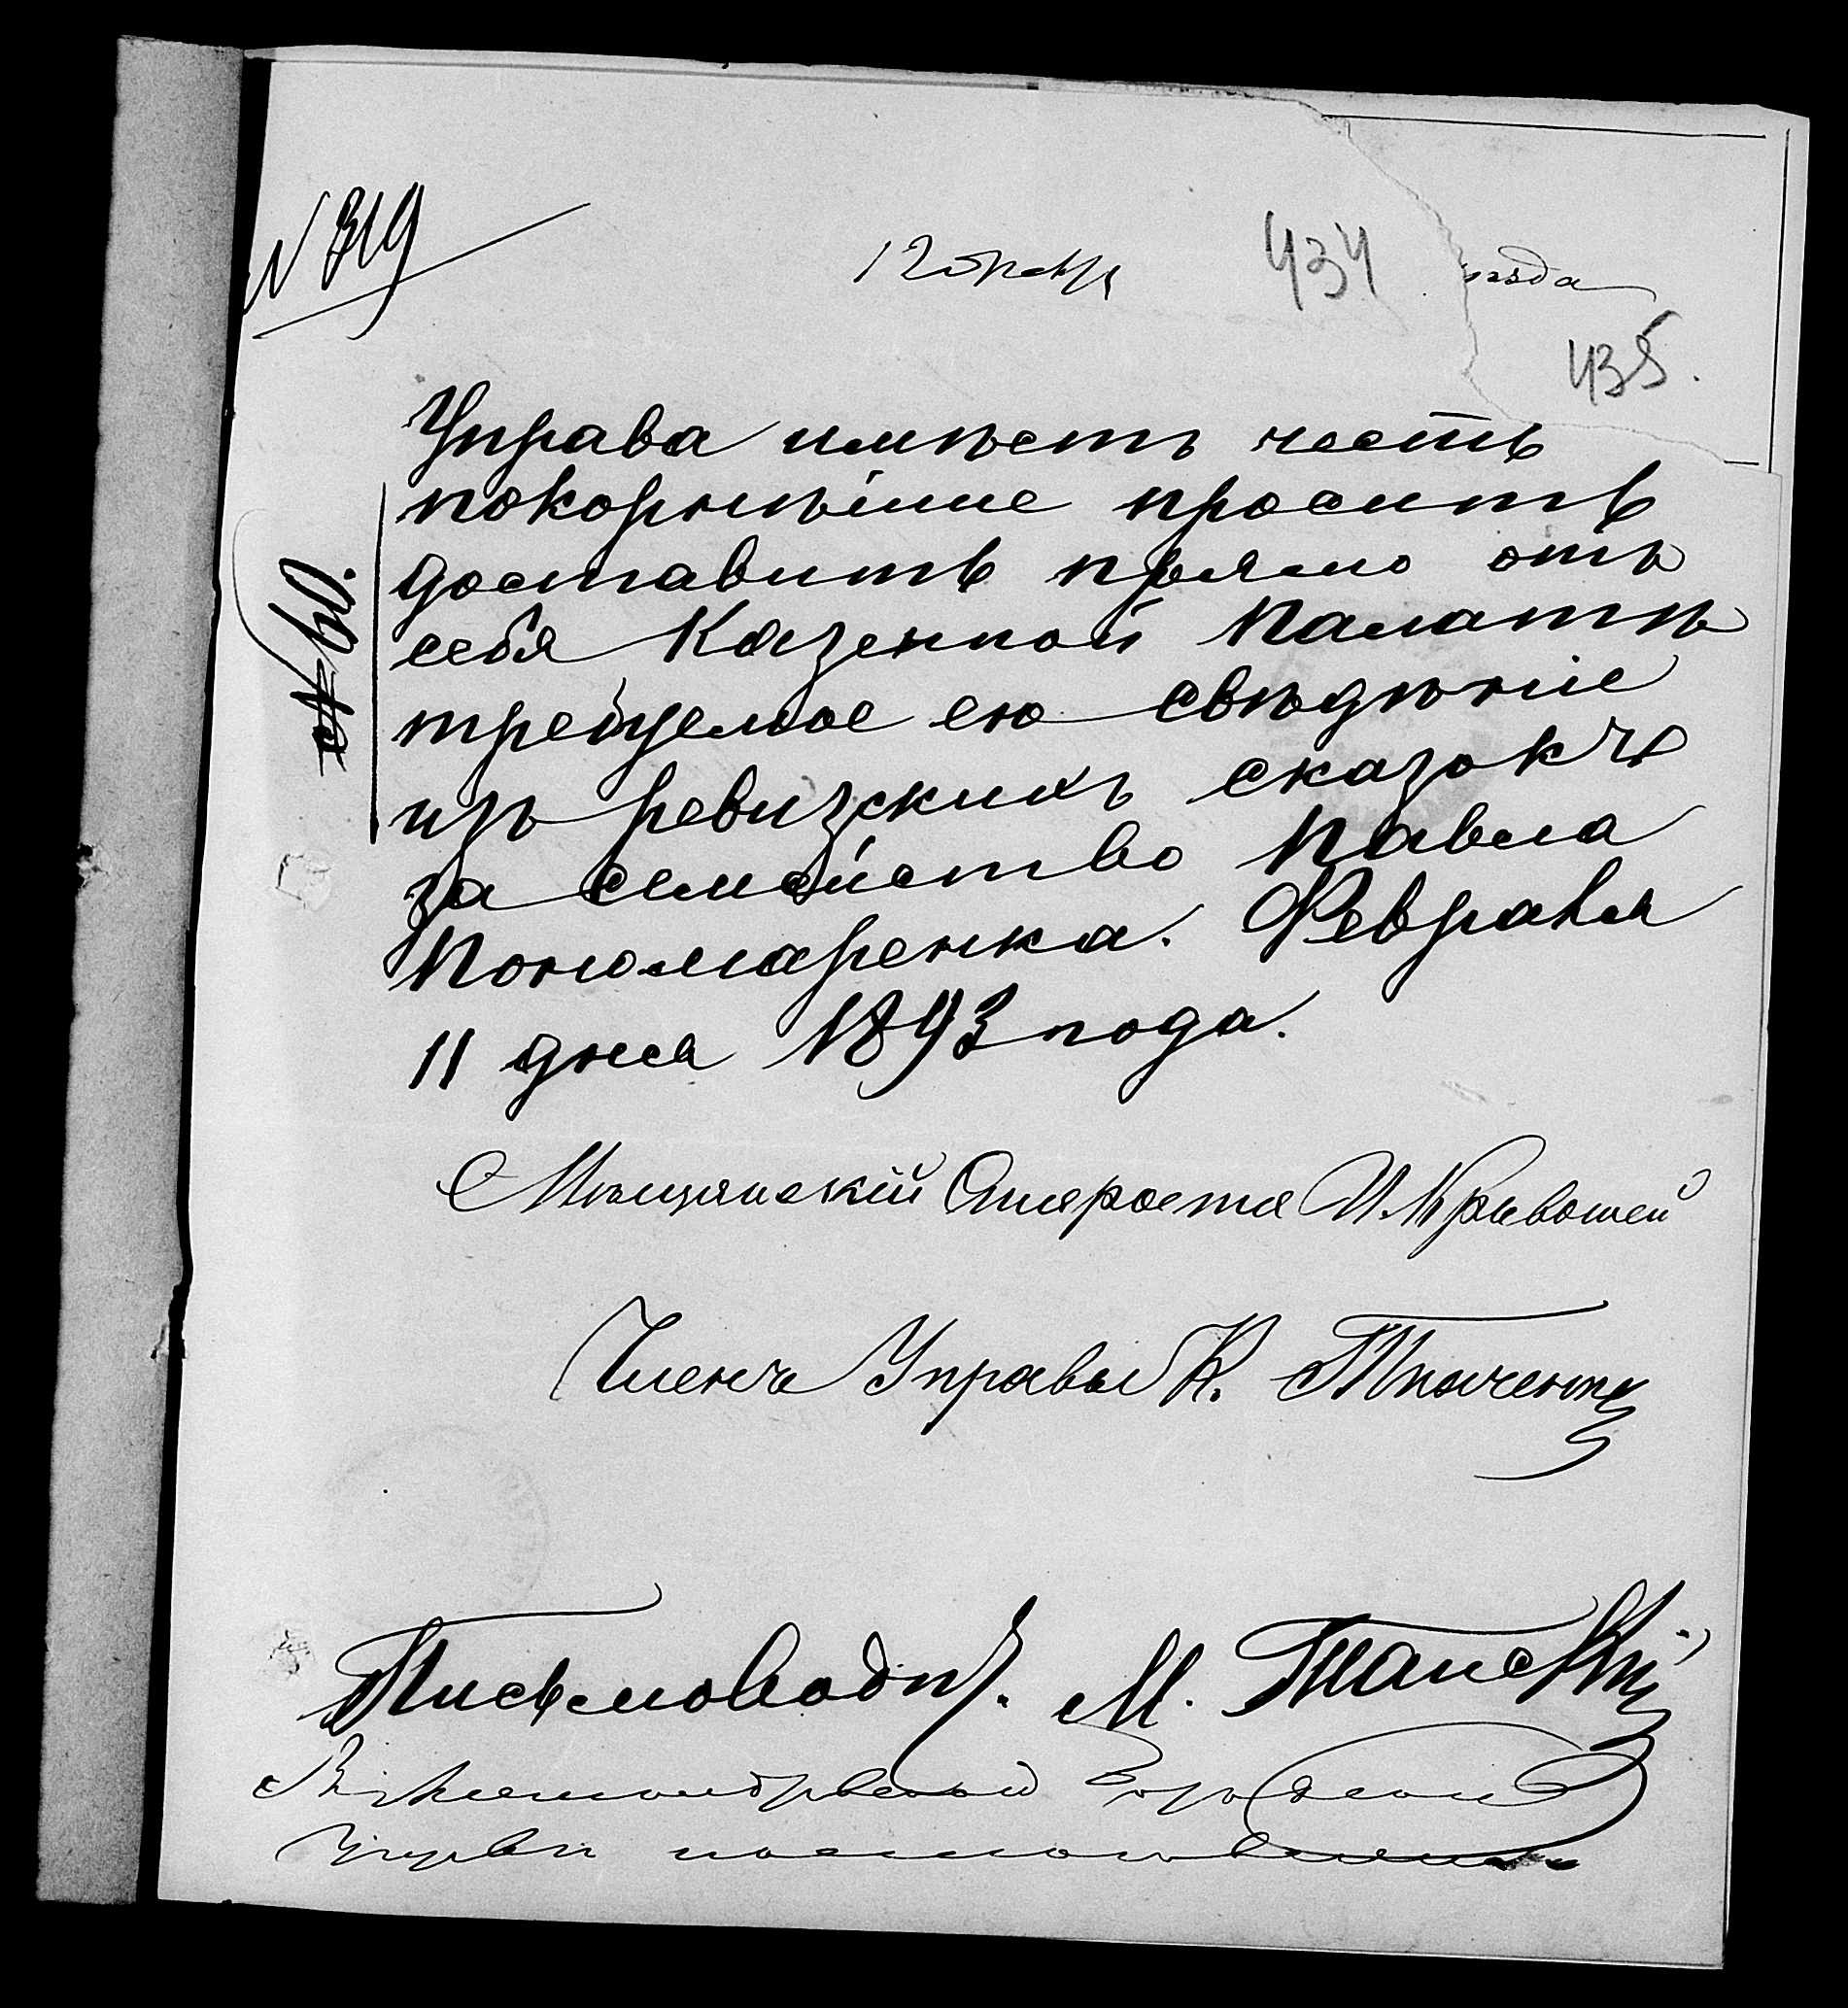 N 319
434
435.
Управа имѣетъ честь
покорнѣйше проситъ
доставить прямо отъ
себя Казенной Палатѣ
требуемое ею свѣдѣніе
изъ ревизскихъ сказокъ
за семейство Павла
Пономаренка. Февраля
11 дня 1893 года.
№ 60.
Мѣщанскій Староста И. Кривошей
Членъ Управы К. Ткаченко
Письмоводит. М. Танскій